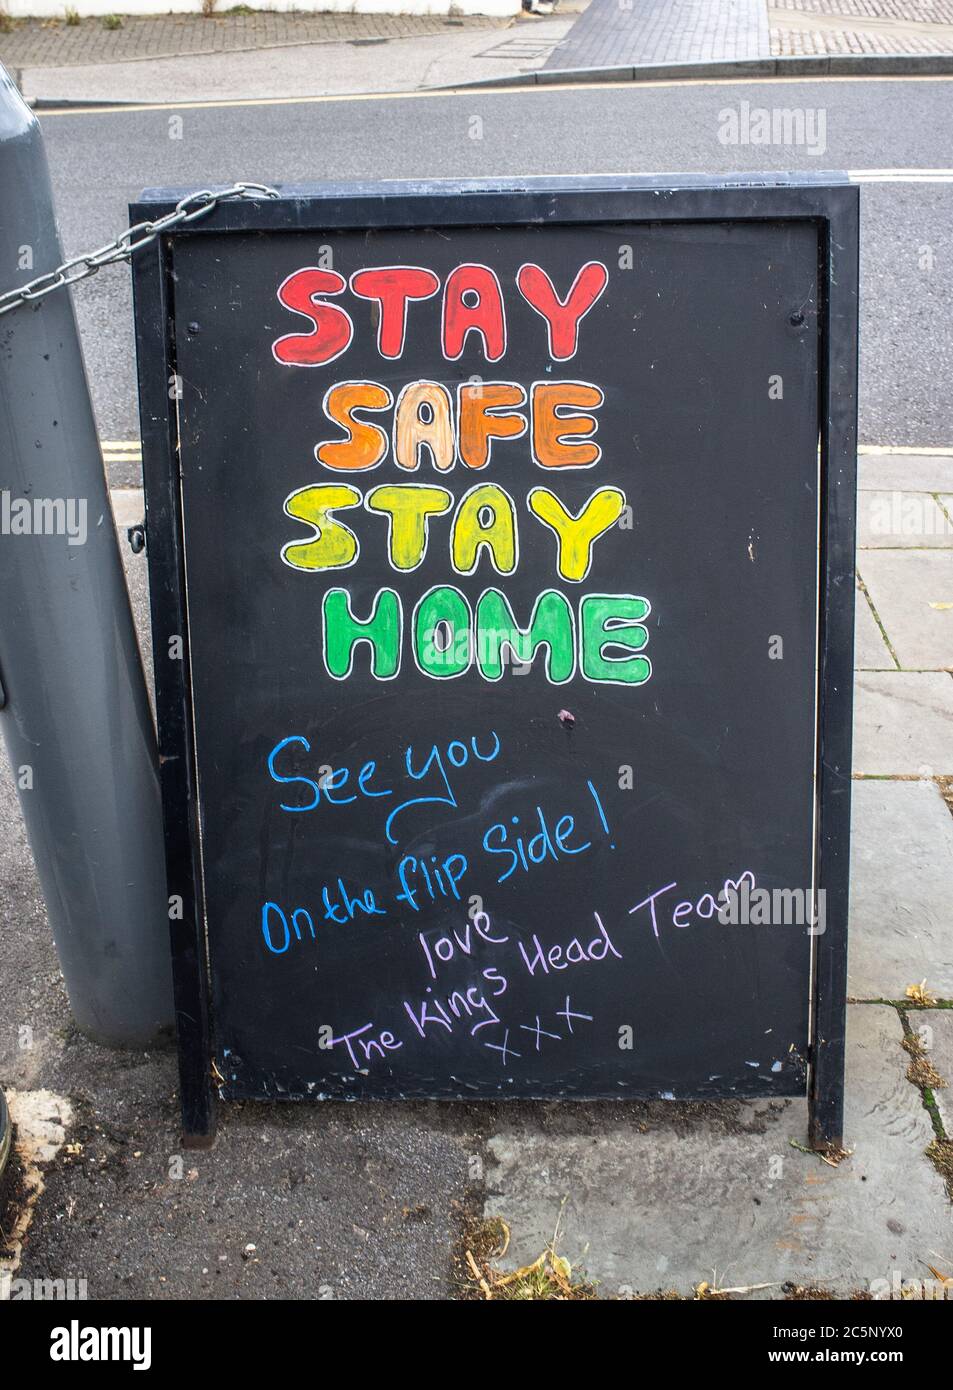 STAY
SAFE
STAY
HOME
See you
On the flip Side!
love
The Kings Head Team
xxx
alamy
alamy
Image ID: 2C5NYX0
www.alamy.com